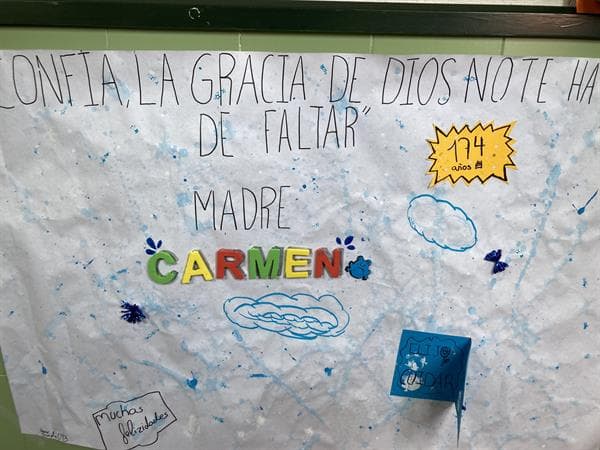 CONFÍA, LA GRACIA DE DIOS NO TE HA
DE FALTAR"
174
años
MADRE
CARMEN
Muchas
felicidades